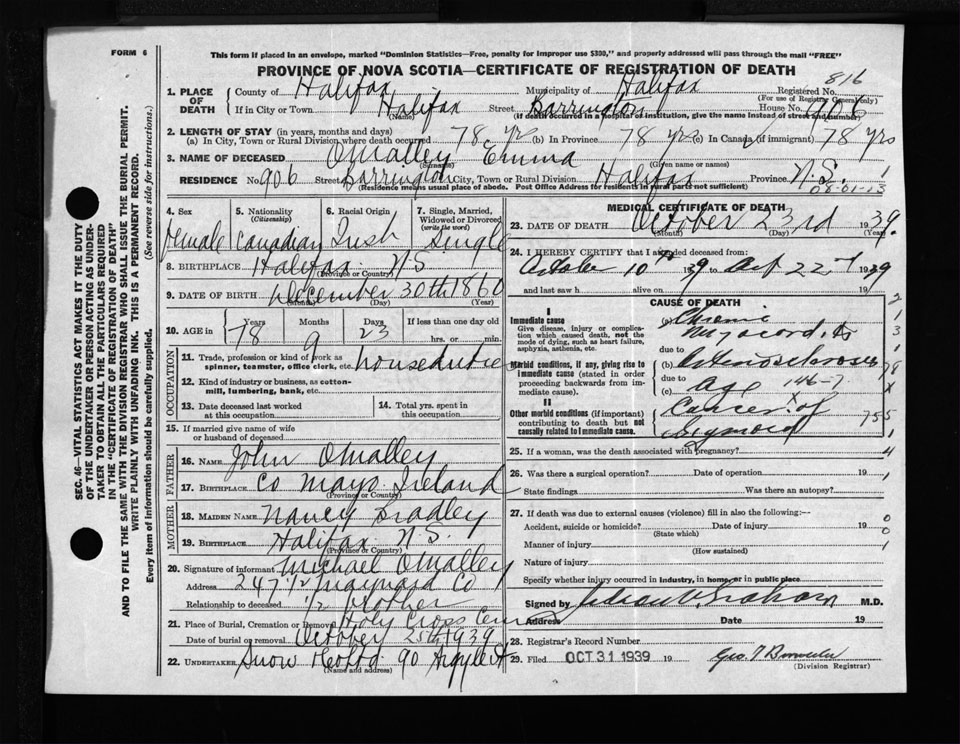 FORM 6
This form if placed in an envelope, marked "Dominion Statistics—Free, penalty for improper use $300," and properly addressed will pass through the mail "FREE"
PROVINCE OF NOVA SCOTIA—CERTIFICATE OF REGISTRATION OF DEATH
816
1. PLACE OF DEATH County of Halifax Municipality of Halifax Registered No.
(For use of Registrar General only)
If in City or Town Halifax Street Barrington House No.
(Name) (If death occurred in a hospital of institution, give the name instead of street and number)
2. LENGTH OF STAY (in years, months and days)
(a) In City, Town or Rural Division where death occurred 78 yrs (b) In Province 78 yrs (c) In Canada (if immigrant) 78 yrs
3. NAME OF DECEASED OMalley Emma
(Surname) (Given name or names)
RESIDENCE No. 906 Street Barrington City, Town or Rural Division Halifax Province N.S.
(Residence means usual place of abode. Post Office Address for residents in rural parts not sufficient)
08-01-13
4. Sex female
5. Nationality (Citizenship) Canadian
6. Racial Origin Irish
7. Single, Married, Widowed or Divorced (write the word) Single
8. BIRTHPLACE Halifax N.S.
(Province or Country)
9. DATE OF BIRTH December 30th 1860
(Month) (Day) (Year)
10. AGE in Years Months Days If less than one day old
78 9 23 hrs. or min.
OCCUPATION
11. Trade, profession or kind of work as spinner, teamster, office clerk, etc. houseduties
12. Kind of industry or business, as cotton-mill, lumbering, bank, etc.
13. Date deceased last worked at this occupation
14. Total yrs. spent in this occupation
15. If married give name of wife or husband of deceased
FATHER
16. NAME John OMalley
17. BIRTHPLACE Co Mayo Ireland
(Province or Country)
MOTHER
18. MAIDEN NAME Nancy Bradley
19. BIRTHPLACE Halifax N.S.
(Province or Country)
20. Signature of informant Michael OMalley
Address 247 1/2 Maynard
Relationship to deceased Brother
21. Place of Burial, Cremation or Removal Holy Cross
Date of burial or removal October 25th 1939
22. UNDERTAKER Snow 90 Argyle St
(Name and address)
MEDICAL CERTIFICATE OF DEATH
23. DATE OF DEATH October 23rd 1939.
(Month) (Day)
24. I HEREBY CERTIFY that I attended deceased from:
October 10th 1939 to Oct 22 1939
and last saw h alive on 19
CAUSE OF DEATH
I
Immediate cause
Give disease, injury or complication which caused death, not the mode of dying, such as heart failure, asphyxia, asthenia, etc.
(a) Chronic Myocarditis
due to
Morbid conditions, if any, giving rise to immediate cause (stated in order proceeding backwards from immediate cause)
(b) Arteriosclerosis
due to
(c) Age
146-7
II
Other morbid conditions (if important) contributing to death but not causally related to immediate cause.
Cancer of Sigmoid
25. If a woman, was the death associated with pregnancy?
26. Was there a surgical operation? Date of operation 19
State findings Was there an autopsy?
27. If death was due to external causes (violence) fill in also the following:—
Accident, suicide or homicide? Date of injury 19
(State which)
Manner of injury
(How sustained)
Nature of injury
Specify whether injury occurred in industry, in home, or in public place
Signed by Graham M.D.
Address Date 19
28. Registrar's Record Number
29. Filed OCT 31 1939 19
(Division Registrar)
SEC. 46—VITAL STATISTICS ACT MAKES IT THE DUTY OF THE UNDERTAKER OR PERSON ACTING AS UNDERTAKER TO OBTAIN ALL THE PARTICULARS REQUIRED IN THE "CERTIFICATE OF REGISTRATION OF DEATH" AND TO FILE THE SAME WITH THE DIVISION REGISTRAR WHO SHALL ISSUE THE BURIAL PERMIT.
WRITE PLAINLY WITH UNFADING INK. THIS IS A PERMANENT RECORD.
Every item of information should be carefully supplied. (See reverse side for instructions.)